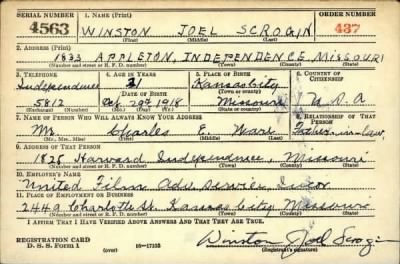 SERIAL NUMBER 1. NAME (Print) ORDER NUMBER
4563 WINSTON JOEL SCROGIN 437
(First) (Middle) (Last)
2. ADDRESS (Print)
1833 APPLETON, INDEPENDENCE, MISSOURI
(Number and street or R. F. D. number) (Town) (County) (State)
3. TELEPHONE 4. AGE IN YEARS 5. PLACE OF BIRTH 6. COUNTRY OF CITIZENSHIP
Independence 21 Kansas City
DATE OF BIRTH (Town or county)
5812 1918 Missouri U.S.A
(Exchange) (Number) (Mo.) (Day) (Yr.) (State or country)
7. NAME OF PERSON WHO WILL ALWAYS KNOW YOUR ADDRESS 8. RELATIONSHIP OF THAT PERSON
Mr. Charles E. Ware Father-in-law
(Mr., Mrs., Miss) (First) (Middle) (Last)
9. ADDRESS OF THAT PERSON
1828 Harvard Independence, Missouri
(Number and street or R. F. D. number) (Town) (County) (State)
10. EMPLOYER'S NAME
United Film Adv Service,
11. PLACE OF EMPLOYMENT OR BUSINESS
2449 Charlotte St. Kansas City Missouri
(Number and street or R. F. D. number) (Town) (County) (State)
I AFFIRM THAT I HAVE VERIFIED ABOVE ANSWERS AND THAT THEY ARE TRUE.
REGISTRATION CARD
D. S. S. FORM 1 (over) 16—17105 Winston Joel Scrogin